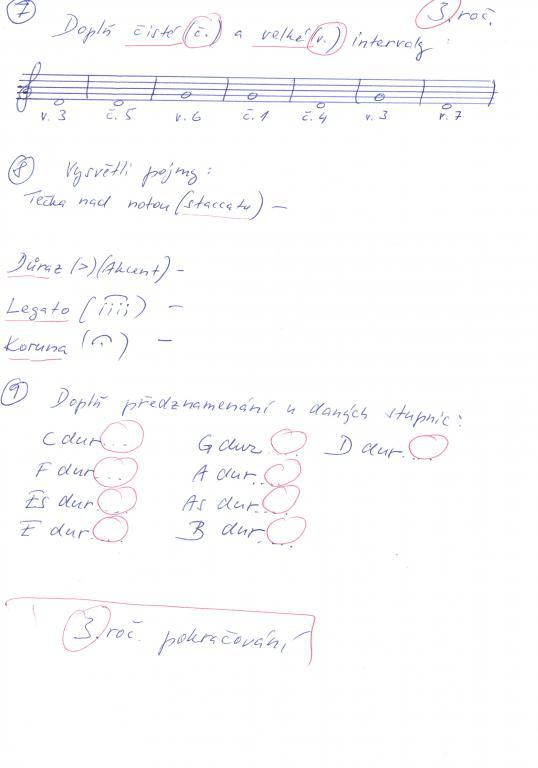 7 Doplň čisté (č.) a velké (v.) intervaly : 3. roč.
v. 3 č. 5 v. 6 č. 1 č. 4 v. 3 v. 7
8 Vysvětli pojmy :
Tečka nad notou (staccato) –
Důraz (>) (Akcent) –
Legato ( ) –
Koruna ( ) –
9 Doplň předznamenání u daných stupnic :
C dur ... G dur ... D dur ...
F dur ... A dur ...
Es dur ... As dur ...
E dur ... B dur ...
3. roč. pokračování